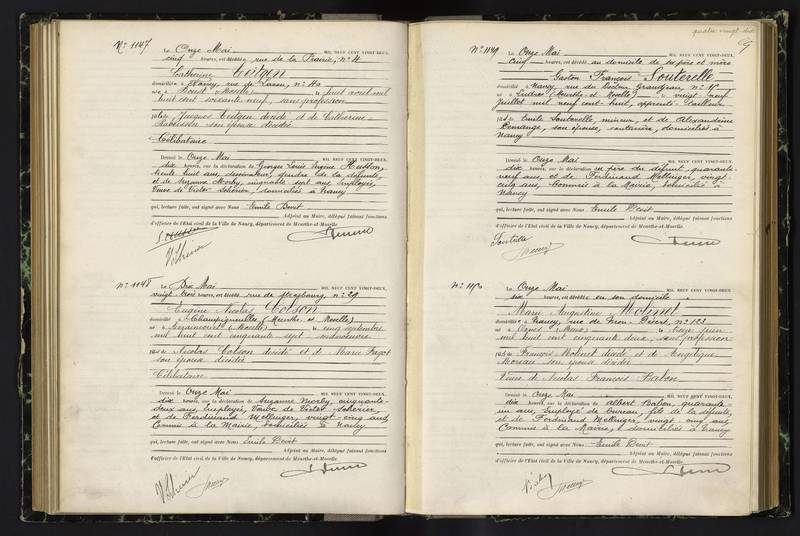 N° 1147
Le Onze Mai MIL NEUF CENT VINGT-DEUX,
cinq heures, est décédée, rue de la Prairie, n° 4
Catherine
domiciliée à Nancy, rue de
née à (Moselle) le huit août mil
huit cent soixante neuf, sans profession
fille de Jacques décédé et de Catherine
son épouse décédée
Célibataire
Dressé le Onze Mai MIL NEUF CENT VINGT-DEUX,
dix heures, sur la déclaration de Georges Louis Eugène Husson,
trente huit ans, dessinateur, gendre de la défunte,
et de Suzanne Morby, cinquante sept ans employée,
Veuve de Victor Scherer, domiciliés à Nancy
qui, lecture faite, ont signé avec Nous Emile Devit
Adjoint au Maire, délégué faisant fonctions
d'officier de l'Etat civil de la Ville de Nancy, département de Meurthe-et-Moselle.
N° 1148
Le Dix Mai MIL NEUF CENT VINGT-DEUX,
vingt trois heures, est décédé rue de Strasbourg, n° 29
Eugène Nicolas Colson
domicilié à Champigneulles (Meurthe et Moselle)
né à (Moselle) le cinq septembre
mil huit cent cinquante sept
fils de Nicolas Colson décédé et de Marie
son épouse décédée
Célibataire
Dressé le Onze Mai MIL NEUF CENT VINGT-DEUX,
dix heures, sur la déclaration de Suzanne Morby, cinquante
deux ans, employée, Veuve de Victor Scherer,
et de Ferdinand Mellinger, vingt cinq ans,
Commis à la Mairie, domiciliés à Nancy
qui, lecture faite, ont signé avec Nous Emile Devit
Adjoint au Maire, délégué faisant fonctions
d'officier de l'Etat civil de la Ville de Nancy, département de Meurthe-et-Moselle.
quatre vingt dix
N° 1149
Le Onze Mai MIL NEUF CENT VINGT-DEUX,
cinq heures, est décédé au domicile de ses père et mère
Gaston François Souterelle
domicilié à Nancy, rue du Grandjean, n° 15
né à (Meurthe et Moselle) le vingt neuf
Juillet mil neuf cent huit, apprenti tailleur
fils de Emile Souterelle, mineur, et de Alexandrine
Demange, son épouse, couturière, domiciliés à
Nancy
Dressé le Onze Mai MIL NEUF CENT VINGT-DEUX,
dix heures, sur la déclaration du père du défunt, quarante
neuf ans, et de Ferdinand Mellinger, vingt
cinq ans, Commis à la Mairie, domicilié à
Nancy
qui, lecture faite, ont signé avec Nous Emile Devit
Adjoint au Maire, délégué faisant fonctions
d'officier de l'Etat civil de la Ville de Nancy, département de Meurthe-et-Moselle.
N° 1150
Le Onze Mai MIL NEUF CENT VINGT-DEUX,
six heures, est décédée en son domicile
Marie Augustine Molinet
domiciliée à Nancy, rue de n° 122
née à (Meuse) le treize Juin
mil huit cent cinquante deux, sans profession
fille de François Molinet décédé et de Angélique
Moreau son épouse décédée
Veuve de Nicolas François Babon
Dressé le Onze Mai MIL NEUF CENT VINGT-DEUX,
dix heures, sur la déclaration de Albert Babon, quarante
un ans, employé de bureau, fils de la défunte,
et de Ferdinand Mellinger, vingt cinq ans,
Commis à la Mairie, domiciliés à Nancy
qui, lecture faite, ont signé avec Nous Emile Devit
Adjoint au Maire, délégué faisant fonctions
d'officier de l'Etat civil de la Ville de Nancy, département de Meurthe-et-Moselle.